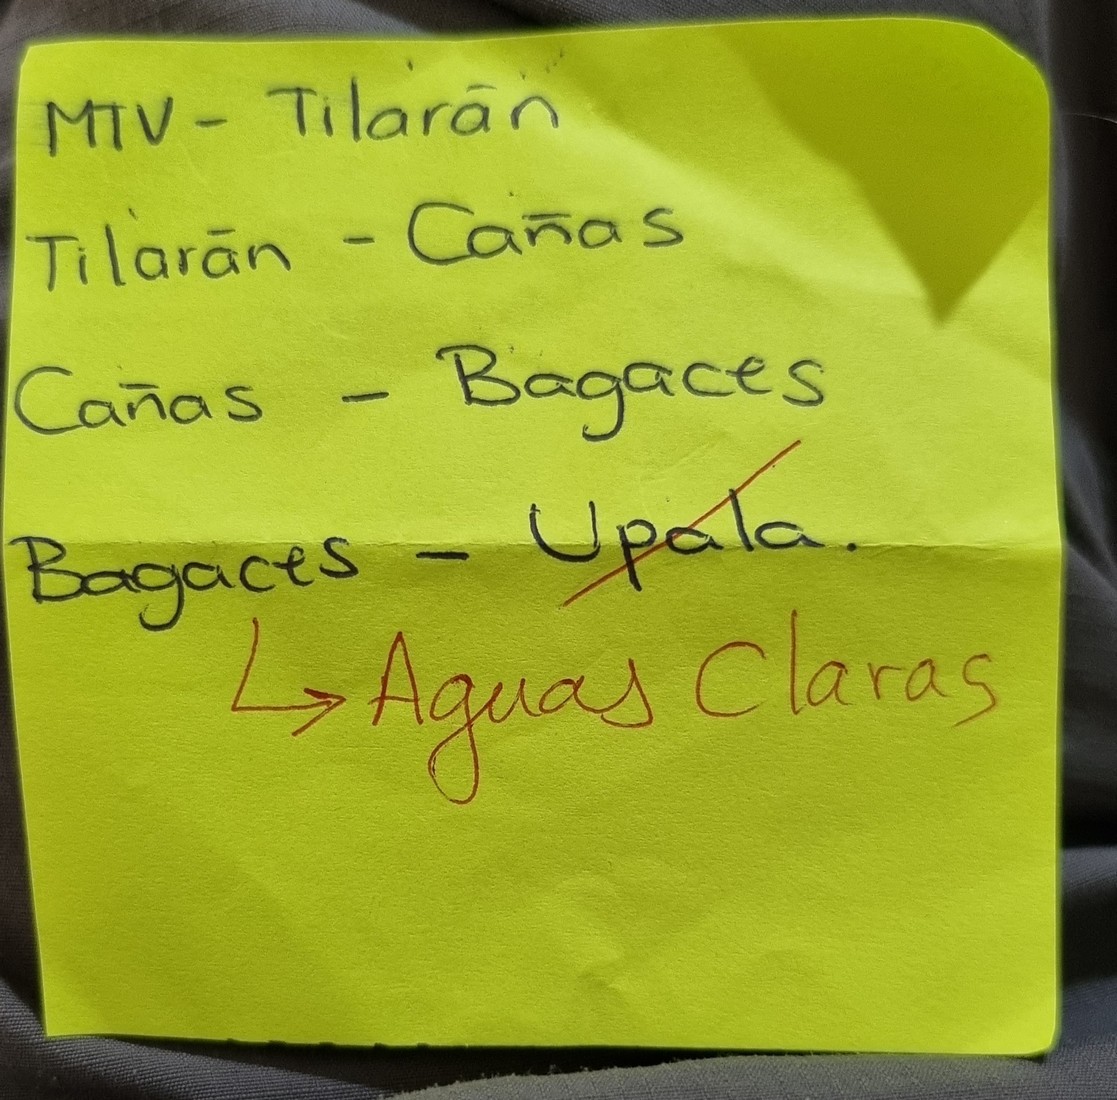 MTV - Tilarán
Tilarán - Cañas
Cañas - Bagaces
Bagaces - Upala.
↳ Aguas Claras